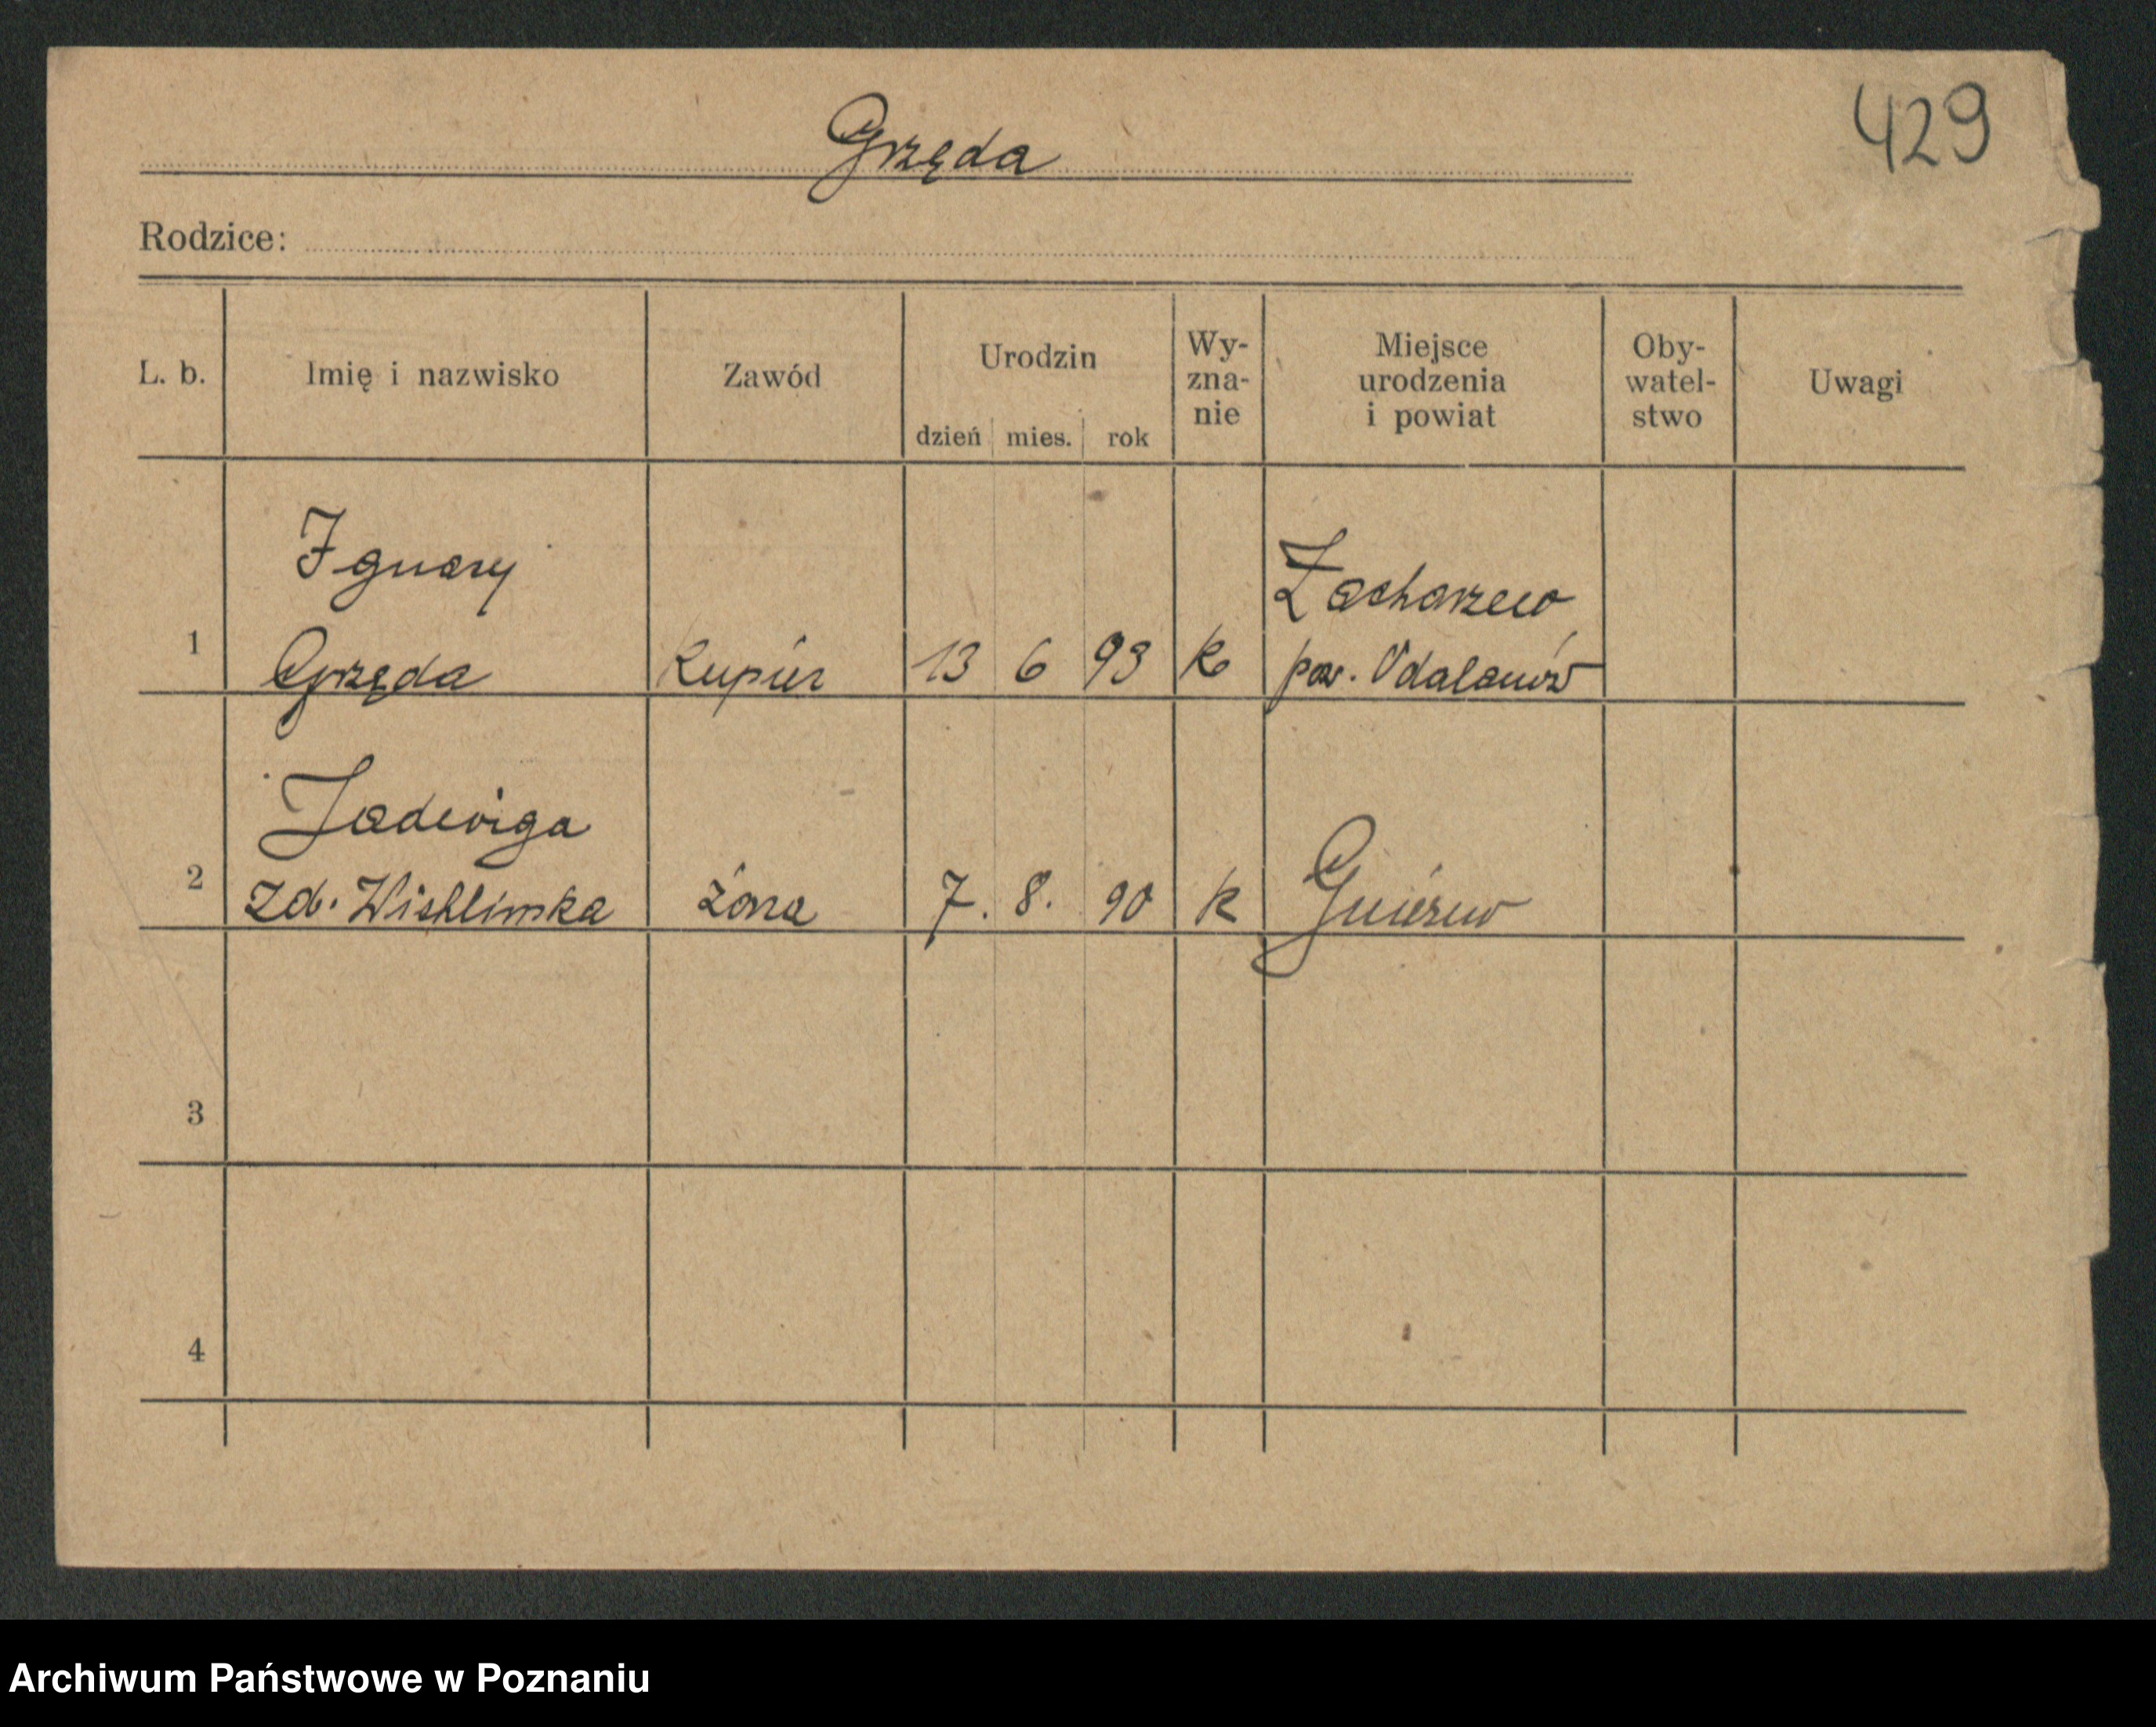 429
Grzęda
Rodzice:
L. b. Imię i nazwisko Zawód Urodzin dzień mies. rok Wy-zna-nie Miejsce urodzenia i powiat Oby-watel-stwo Uwagi
Ignacy
Zacharzew
1 Grzęda Kupiec 13 6 93 k pow. Odalanów
Jadwiga
2 zd. żona 7. 8. 90 k
3
4
Archiwum Państwowe w Poznaniu